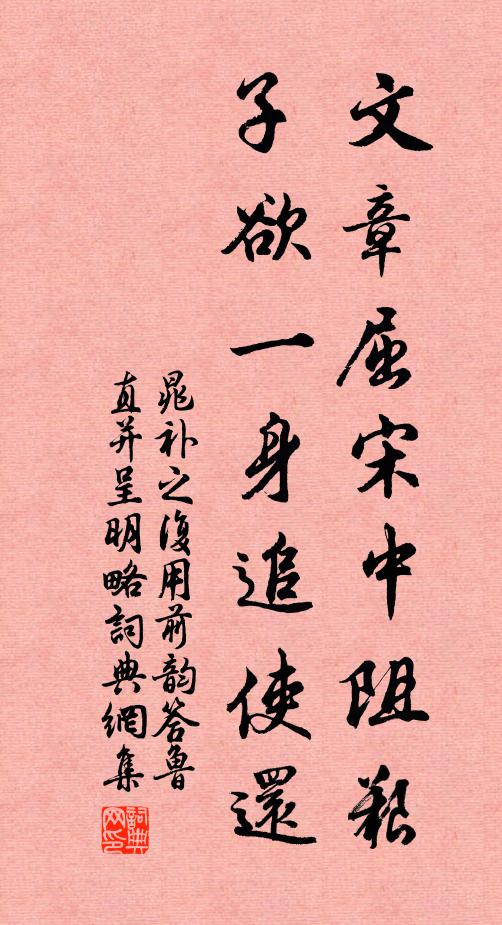 文章屈宋中阻艱
子欲一身追使還
晁補之復用前韵答魯
直并呈明略詞典網集
詞典网印